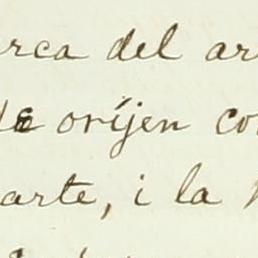 erca del ar
de oríjen co
arte, i la